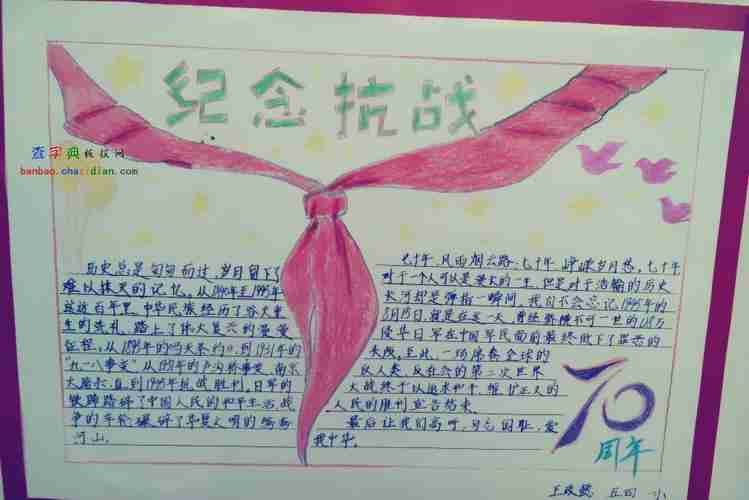 纪念抗战
查字典板报网
banbao.chazidian.com
历史总是匆匆而过，岁月留下了
难以抹灭的记忆。从1840年至1945年
这这百年里，中华民族经历了浴火重
生的洗礼，踏上了伟大复兴的
征程。从1895年的《马关条约》，到1931年的
"九一八事变"从1937年的卢沟桥事变、南京
大屠杀，直到1945年抗战胜利。日军的
铁蹄踏碎了中国人民的和平生活，战
争的车轮碾碎了华夏文明的
河山。
七十年，风雨烟云路，七十年，峥嵘岁月愁。七十年
对于一个人可以是漫长的一生，但是对于浩瀚的历史
长河却是弹指一瞬间。我们不会忘记1945年的
8月15日，就是在这一天，曾经骄横不可一世的
侵华日军在中国军民面前最终低下了罪恶的
头颅。至此，一场席卷全球的
反人类、反社会的第二次世界
大战终于以追求和平、维护正义的
人民的胜利宣告结束。
最后让我们高呼，勿忘国耻，爱
我中华。
70
周年
五四